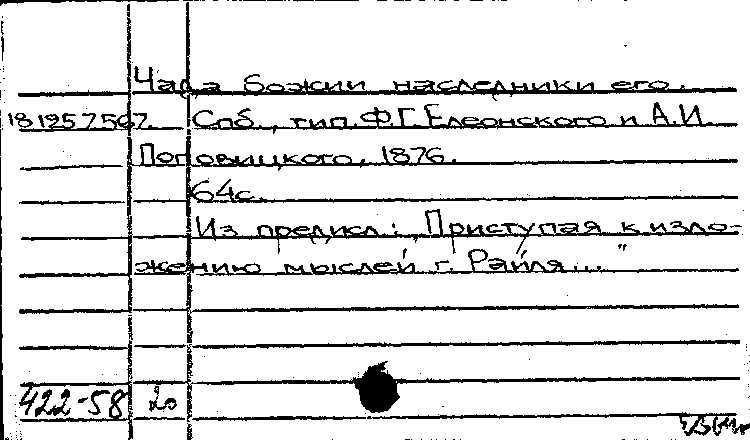 Чада божии наследники его.
18 125 7 567. Спб., тип. Ф.Г.Елеонского и А.И.
Поповицкого, 1876.
64с.
Из предисл: „Приступая к изло-
жению мыслей г. Райля..."
422-58 20